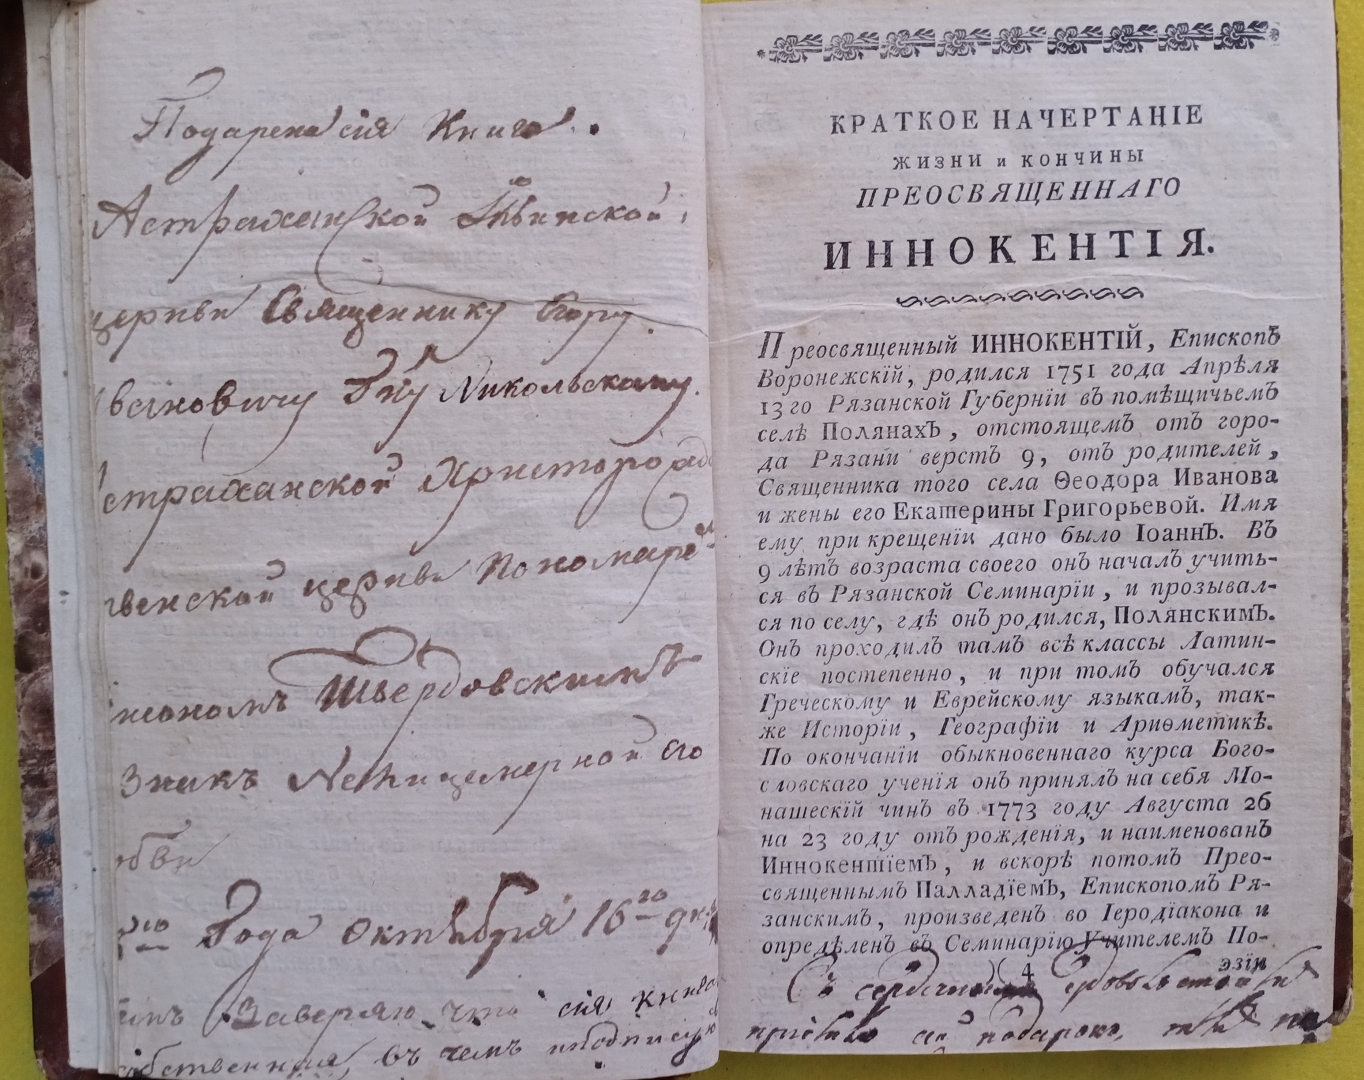 Подарена сія Книга.
Астраханской Тѣвинской
церкви Священнику Егору
Никольскому.
Христорожд
церкви Пономаре
Твердовскимъ
Нелицемерной его
Года Октября 16го дня
Заверяю что сія книга
въ чемъ и подписую
КРАТКОЕ НАЧЕРТАНІЕ
ЖИЗНИ и КОНЧИНЫ
ПРЕОСВЯЩЕННАГО
ИННОКЕНТІЯ.
Преосвященный ИННОКЕНТІЙ, Епископъ
Воронежскій, родился 1751 года Апрѣля
13го Рязанской Губерніи въ помѣщичьемъ
селѣ Полянахъ, отстоящемъ отъ горо-
да Рязани верстъ 9, отъ родителей,
Священника того села Ѳеодора Иванова
и жены его Екатерины Григорьевой. Имя
ему при крещеніи дано было Іоаннъ. Въ
9 лѣтъ возраста своего онъ началъ учить-
ся въ Рязанской Семинаріи, и прозывал-
ся по селу, гдѣ онъ родился, Полянскимъ.
Онъ проходилъ тамъ всѣ классы Латин-
скіе постепенно, и при томъ обучался
Греческому и Еврейскому языкамъ, так-
же Исторіи, Географіи и Ариѳметикѣ.
По окончаніи обыкновеннаго курса Бого-
словскаго ученія онъ принялъ на себя Мо-
нашескій чинъ въ 1773 году Августа 26
на 23 году отъ рожденія, и наименованъ
Иннокентіемъ, и вскорѣ потомъ Прео-
священнымъ Палладіемъ, Епископомъ Ря-
занскимъ, произведенъ во Іеродіакона и
опредѣленъ въ Семинарію Учителемъ По-
)( 4 эзіи
Съ
подарокъ,